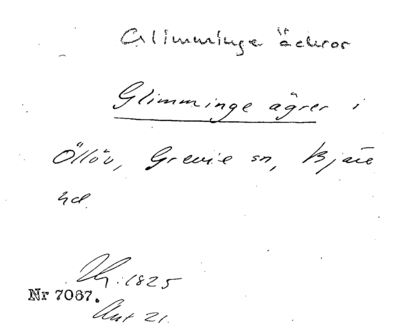 Glimminge äckror
Glimminge ägrer i
Öllöv, Grevie sn, Bjäre
hd
1825
Nr 7067.
Ant 21.